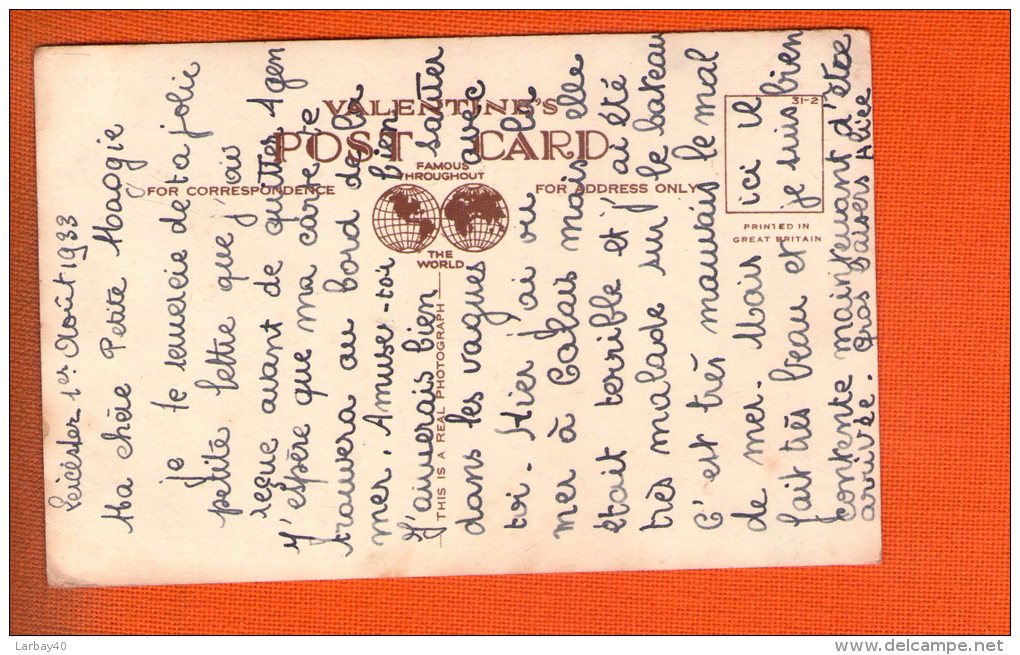 Leicester 1er Août 1933
Ma chère Petite Maogie
Je te remercie de ta jolie
petite lettre que j'aiv
reçue avant de quitter Agen
J'espère que ma carte te
trouvera au bord de la
mer. Amuse-toi bien
J'aimerais bien sauter
dans les vagues avec
toi. Hier j'ai vu la
mer à Calais mais elle
était terrible et j'ai été
très malade sur le bateau
C'est très mauvais le mal
de mer. Mais ici il
fait très beau et je suis bien
contente maintenant d'être
arrivée. Gros baisers Alice
VALENTINE'S
POST CARD
FAMOUS
THROUGHOUT
THE
WORLD
FOR CORRESPONDENCE
FOR ADDRESS ONLY
31-2
PRINTED IN
GREAT BRITAIN
THIS IS A REAL PHOTOGRAPH
Larbay40
www.delcampe.net